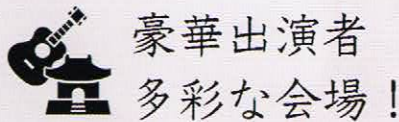 豪華出演者
多彩な会場！